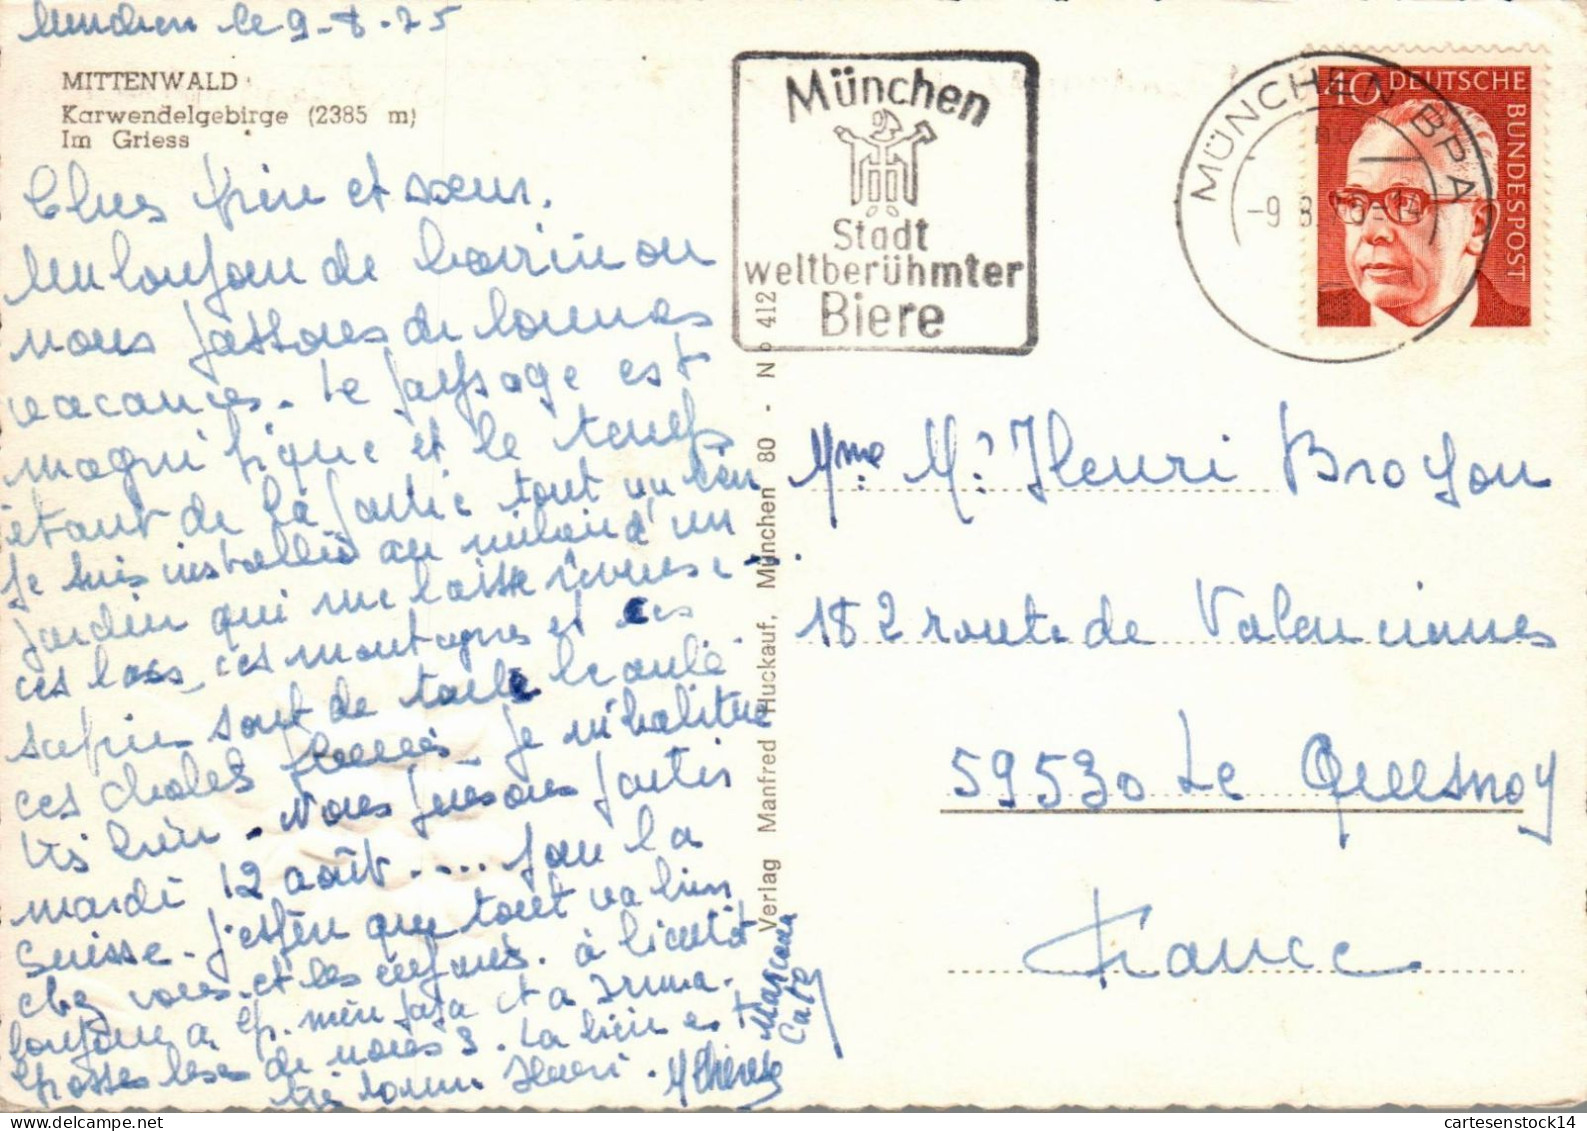 Munchen le 9-8-75
MITTENWALD
Karwendelgebirge (2385 m)
Im Griess
Chers frère et sœur.
Un bonjour de Bavière ou
nous passons de bonnes
vacances. Le paysage est
magnifique et le temps
étant de la partie tout va bien
Je suis installée au milieu d'un
jardin qui me laisse rêveuse
ces bois, ces montagnes et ces
sapins sont de toute beauté
ces chalets fleuris. Je m'habitue
très bien. Nous pensons partir
mardi 12 août .... pour la
Suisse. J'espère que tout va bien
chez vous et les enfants. à bientôt
bonjour a mémé papa et a Irma.
Grosses bises de nous 3. La bière est
très bonne Henri. M Thérèse
München
Stadt
weltberühmter
Biere
MÜNCHEN BPA
-9.8.75-14
40 DEUTSCHE
BUNDESPOST
Verlag Manfred Huckauf, München 80 - No 412
Mme Mr Henri Broyon
182 route de Valenciennes
59530 Le Quesnoy
France
cartesenstock14